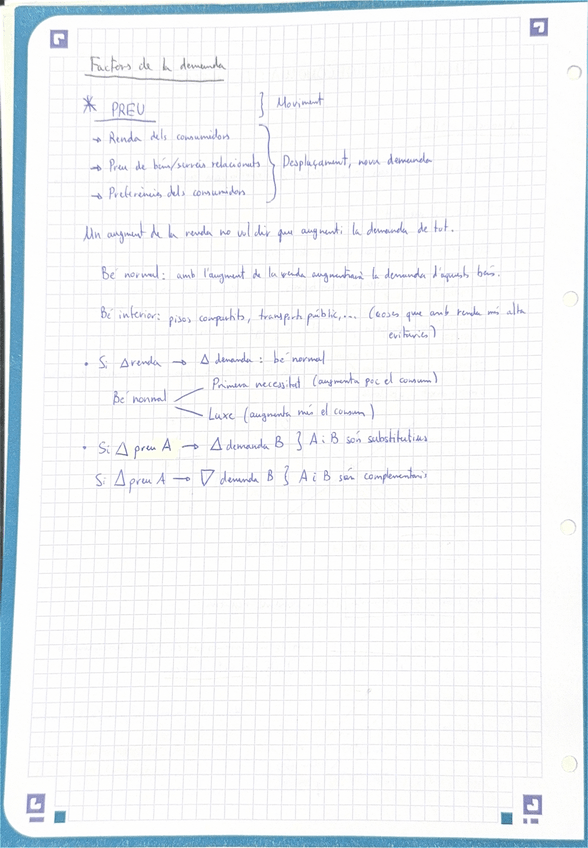 Factors de la demanda
* PREU } Moviment
→ Renda dels consumidors
→ Preu de béns/serveis relacionats } Desplaçament, nova demanda
→ Preferències dels consumidors
Un augment de la renda no vol dir que augmenti la demanda de tot.
Bé normal: amb l'augment de la renda augmentarà la demanda d'aquests béns.
Bé inferior: pisos compartits, transport públic,... (coses que amb renda més alta
evitaries)
• Si △ renda → △ demanda: bé normal
Bé normal
Primera necessitat (augmenta poc el consum)
Luxe (augmenta més el consum)
• Si △ preu A → △ demanda B } A i B són substitutius
Si △ preu A → ▽ demanda B } A i B són complementaris